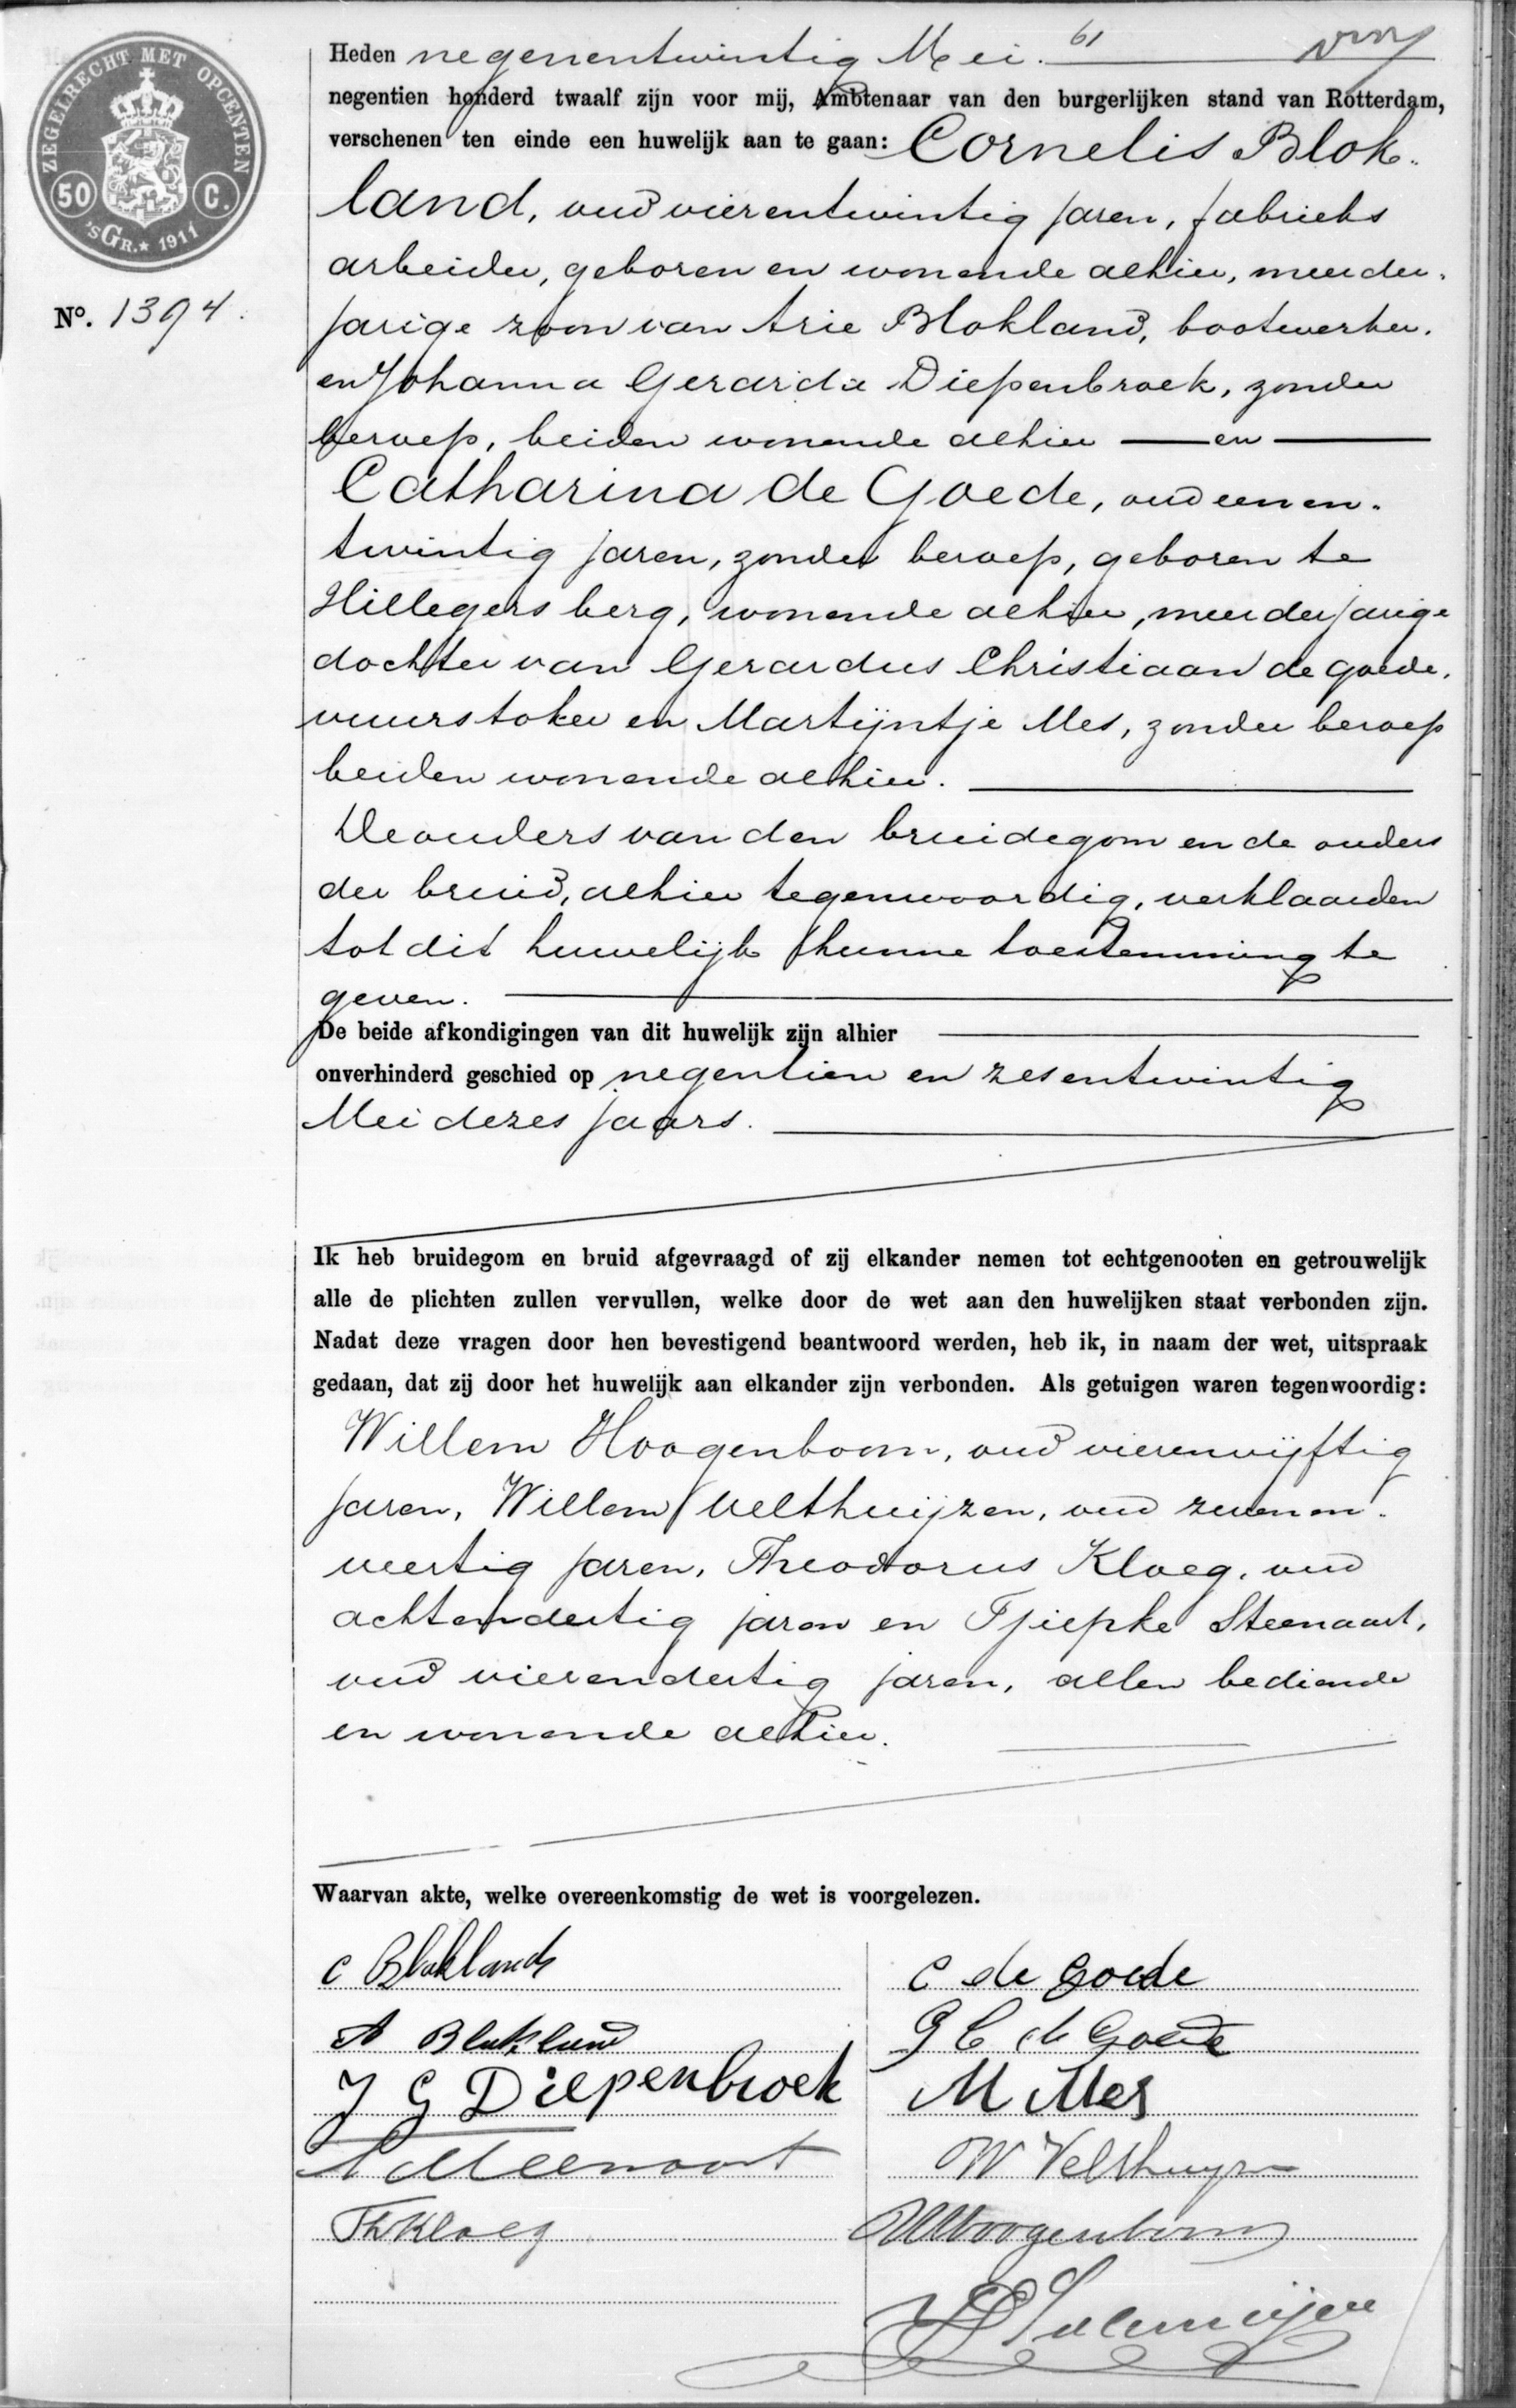 ZEGELRECHT MET OPCENTEN
50 C.
'sGR. ★ 1911
No. 1394.
61
Heden negenentwintig Mei.
negentien honderd twaalf zijn voor mij, Ambtenaar van den burgerlijken stand van Rotterdam,
verschenen ten einde een huwelijk aan te gaan: Cornelis Blok-
land, oud vierentwintig jaren, fabrieks
arbeider, geboren en wonende alhier, meerder-
jarige zoon van Arie Blokland, bootwerker.
en Johanna Gerarda Diepenbroek, zonder
beroep, beiden wonende alhier en
Catharina de Goede, oud eenen-
twintig jaren, zonder beroep, geboren te
Hillegersberg, wonende alhier, meerderjarige
dochter van Gerardus Christiaan de Goede,
vuurstoker en Martijntje Mes, zonder beroep
beiden wonende alhier.
De ouders van den bruidegom en de ouders
der bruid, alhier tegenwoordig, verklaarden
tot dit huwelijk hunne toestemming te
geven.
De beide afkondigingen van dit huwelijk zijn alhier
onverhinderd geschied op negentien en zesentwintig
Mei dezes jaars.
Ik heb bruidegom en bruid afgevraagd of zij elkander nemen tot echtgenooten en getrouwelijk
alle de plichten zullen vervullen, welke door de wet aan den huwelijken staat verbonden zijn.
Nadat deze vragen door hen bevestigend beantwoord werden, heb ik, in naam der wet, uitspraak
gedaan, dat zij door het huwelijk aan elkander zijn verbonden. Als getuigen waren tegenwoordig:
Willem Hoogenboom, oud vierenvijftig
jaren, Willem Velthuijzen, oud zevenen-
veertig jaren, Theodorus Kloeg, oud
achtendertig jaren en Tjiepke Steenaart,
oud vierendertig jaren, allen bediende
en wonende alhier.
Waarvan akte, welke overeenkomstig de wet is voorgelezen.
C Blokland
C de Goede
A Blokland
G C de Goede
J G Diepenbroek
M Mes
W Velthuyzen
Th Kloeg
W Hoogenboom